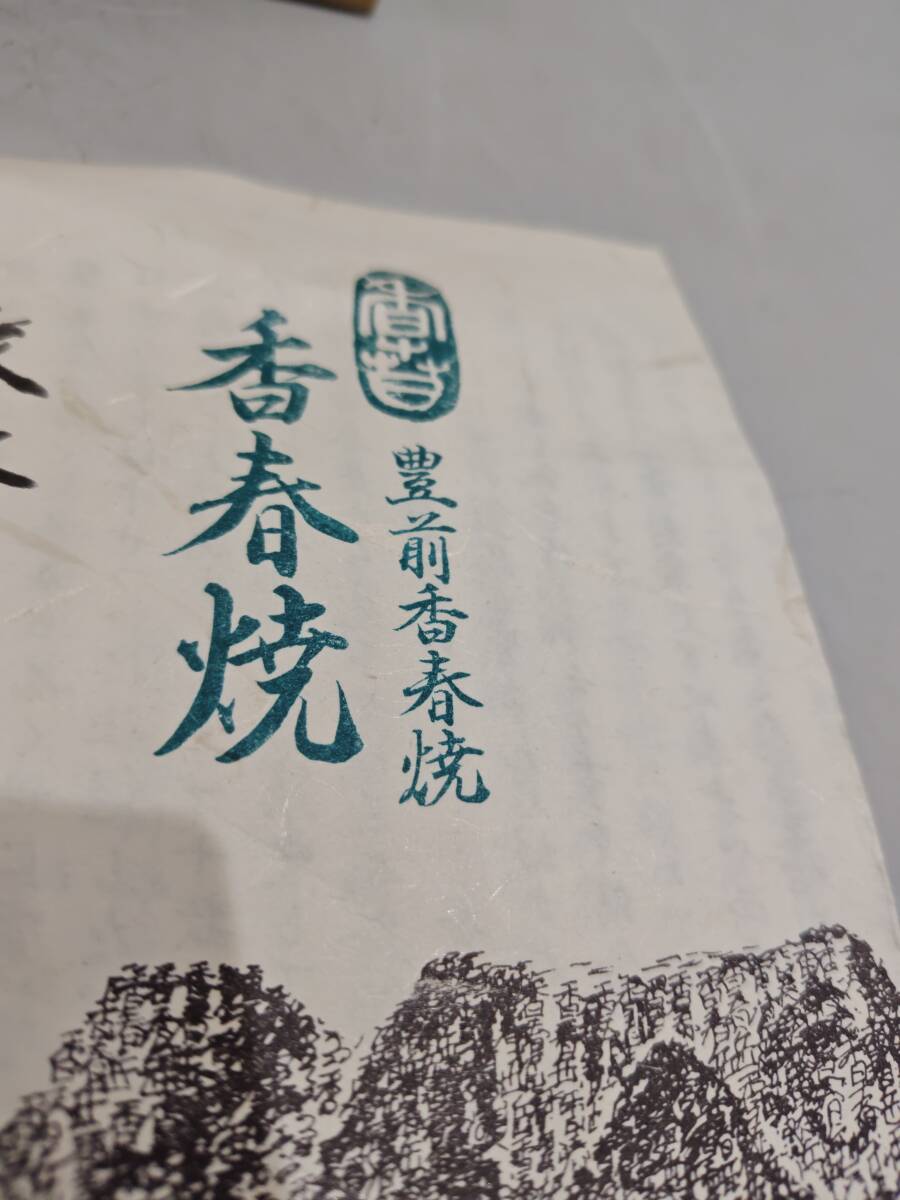 香春
豊前香春焼
香春焼